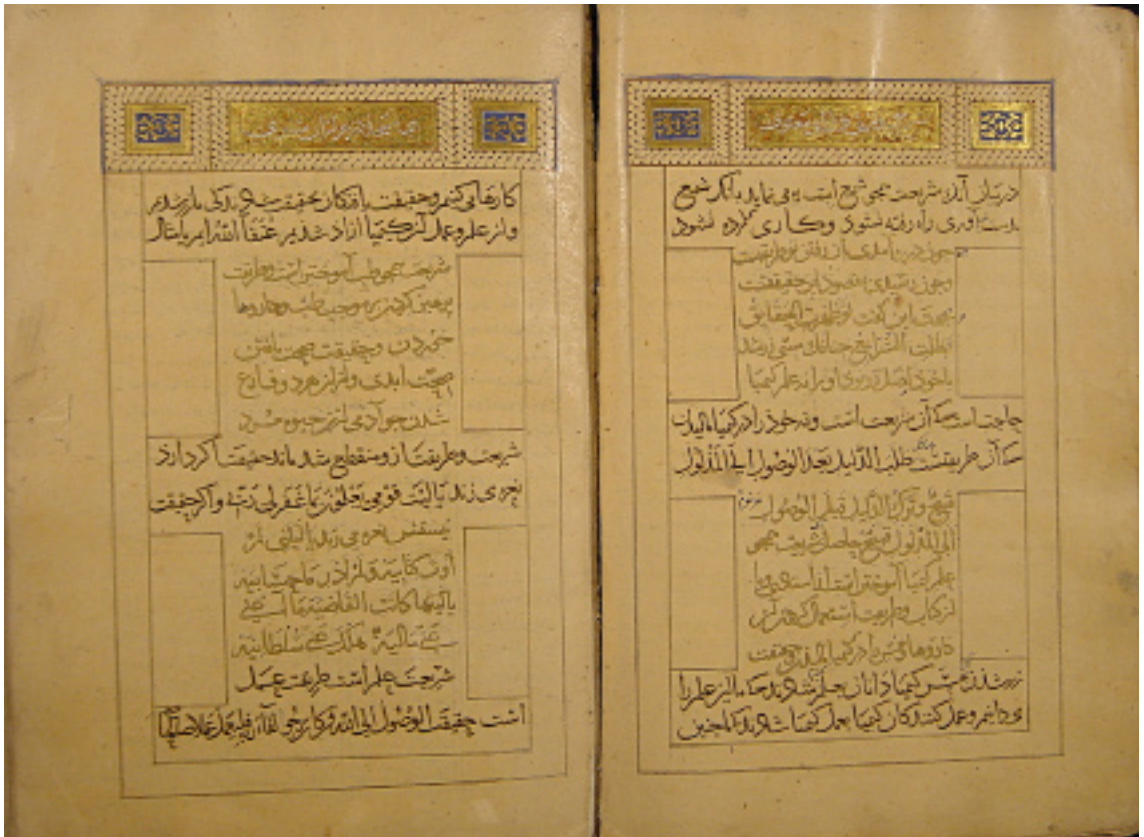 در بیان آنک شریعت همچو شمع است ره می نماید بی آنک شمع
بدست آوری راه رفته نشود و کاری کرده نشود
چون در ره آمدی آن رفتن تو طریقتست
و چون رسیدی بمقصود آن حقیقتست
جهت این گفت لو ظهرت الحقایق
بطلت الشرایع چنانک مسی زر شد
یا خود اصل زر بود او را نه علم کیمیا
حاجت است که آن شریعت است و نه خود را در کیمیا مالیدن
که آن طریقتست طلب الدلیل بعد الوصول الی المدلول
قبیح و ترک الدلیل قبل الوصول
الی المدلول قبیح حاصل شریعت همچو
علم کیمیا آموختن است از استاد یا
از کتاب و طریقت استعمال کردن
داروها و مس را در کیمیا مالیدن حقیقت
زر شدن مس کیمیا دانان بعلم شادند که ما این علم را
می دانیم و عمل کنندگان کیمیا بعمل کیمیا شادند که ما چنین
کارهایی کنیم و حقیقت یافتگان بحقیقت شادند که ما زر شدیم
و از علم و عمل آن کیمیا آزاد شدیم عتقاء الله ایم یا مثال
شریعت همچو طب آموختن است و طریقت
پرهیز کردن بموجب طب و داروها
خوردن و حقیقت صحت یافتن
صحت ابدی و از آن هردو فارغ
شدن چو آدمی ازین حیوة میرد
شریعت و طریقت از و منقطع شد ماند حقیقت اگر دارد
نعره می زند یا لیت قومی یعلمون بما غفر لی ربی و اگر حقیقت
نیستش نعره می زند یا لیتنی لم
اوت کتابیه و لم ادر ما حسابیه
یا لیتها کانت القاضیة ما اغنی
عنی مالیه هلک عنی سلطانیه
شریعت علم است طریقت عمل
است حقیقت الوصول الی الله فمن کان یرجو لقاء ربه فلیعمل عملا صالحا